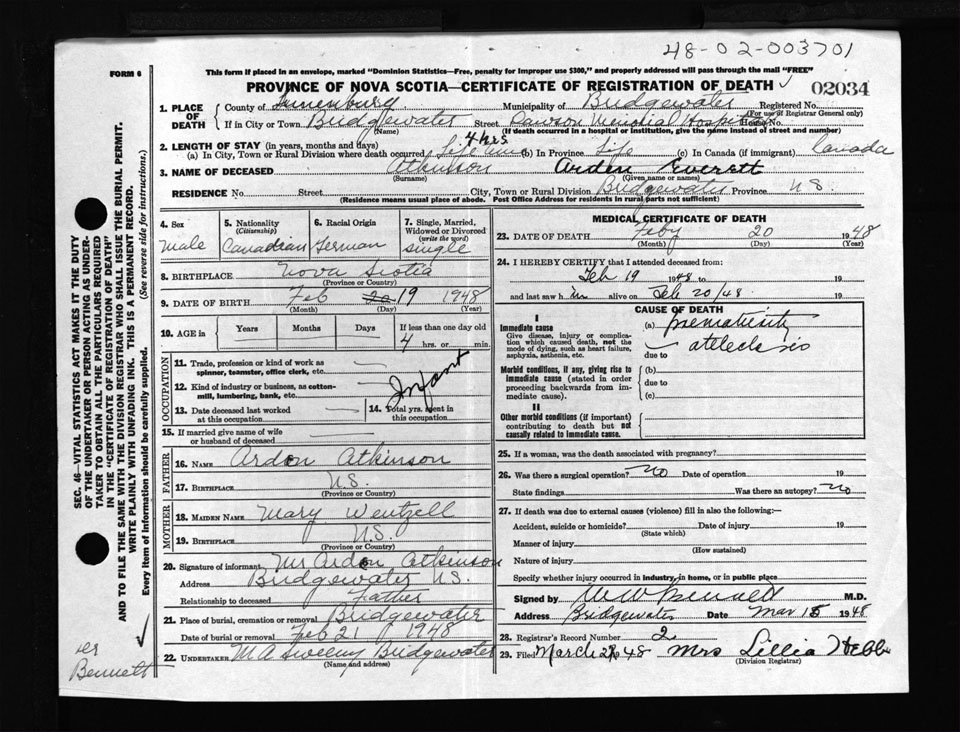 48-02-003701
FORM 6
This form if placed in an envelope, marked "Dominion Statistics—Free, penalty for improper use $300," and properly addressed will pass through the mail "FREE"
PROVINCE OF NOVA SCOTIA—CERTIFICATE OF REGISTRATION OF DEATH
02034
1. PLACE OF DEATH
County of Lunenburg Municipality of Bridgewater Registered No.
(For use of Registrar General only)
If in City or Town Bridgewater Street Dawson Memorial Hospital House No.
(Name) (If death occurred in a hospital or institution, give the name instead of street and number)
2. LENGTH OF STAY (in years, months and days) 4 hrs.
(a) In City, Town or Rural Division where death occurred Life time (b) In Province Life (c) In Canada (if immigrant) Canada
3. NAME OF DECEASED Atkinson Arden Everett
(Surname) (Given name or names)
RESIDENCE No. Street City, Town or Rural Division Bridgewater Province N.S.
(Residence means usual place of abode. Post Office Address for residents in rural parts not sufficient)
4. Sex
male
5. Nationality
(Citizenship)
Canadian
6. Racial Origin
German
7. Single, Married, Widowed or Divorced
(write the word)
single
8. BIRTHPLACE Nova Scotia
(Province or Country)
9. DATE OF BIRTH Feb 20 19 1948
(Month) (Day) (Year)
10. AGE in
Years
Months
Days
If less than one day old
4 hrs. or min.
OCCUPATION
11. Trade, profession or kind of work as spinner, teamster, office clerk, etc.
12. Kind of industry or business, as cotton-mill, lumbering, bank, etc.
Infant
13. Date deceased last worked at this occupation
14. Total yrs. spent in this occupation
15. If married give name of wife or husband of deceased
FATHER
16. NAME Ardon Atkinson
17. BIRTHPLACE N.S.
(Province or Country)
MOTHER
18. MAIDEN NAME Mary Wentzell
19. BIRTHPLACE N.S.
(Province or Country)
20. Signature of informant Mr Ardon Atkinson
Address Bridgewater N.S.
Relationship to deceased Father
21. Place of burial, cremation or removal Bridgewater
Date of burial or removal Feb 21 1948
22. UNDERTAKER M A Sweeny Bridgewater
(Name and address)
MEDICAL CERTIFICATE OF DEATH
23. DATE OF DEATH Feby 20 1948
(Month) (Day) (Year)
24. I HEREBY CERTIFY that I attended deceased from:
Feb 19 1948 to 19
and last saw h im alive on Feb 20/48 19
CAUSE OF DEATH
I
Immediate cause
Give disease, injury or complication which caused death, not the mode of dying, such as heart failure, asphyxia, asthenia, etc.
(a) prematurity
due to
Morbid conditions, if any, giving rise to immediate cause (stated in order proceeding backwards from immediate cause).
(b)
due to
(c)
II
Other morbid conditions (if important) contributing to death but not causally related to immediate cause.
25. If a woman, was the death associated with pregnancy?
26. Was there a surgical operation? no Date of operation 19
State findings Was there an autopsy? no
27. If death was due to external causes (violence) fill in also the following:—
Accident, suicide or homicide? Date of injury 19
(State which)
Manner of injury
(How sustained)
Nature of injury
Specify whether injury occurred in industry, in home, or in public place
Signed by M.D.
Address Bridgewater Date Mar 15 1948
28. Registrar's Record Number 2
29. Filed March 1948 Mrs Lillia Hebb
(Division Registrar)
SEC. 46—VITAL STATISTICS ACT MAKES IT THE DUTY
OF THE UNDERTAKER OR PERSON ACTING AS UNDER-
TAKER TO OBTAIN ALL THE PARTICULARS REQUIRED
IN THE "CERTIFICATE OF REGISTRATION OF DEATH"
AND TO FILE THE SAME WITH THE DIVISION REGISTRAR WHO SHALL ISSUE THE BURIAL PERMIT.
WRITE PLAINLY WITH UNFADING INK. THIS IS A PERMANENT RECORD.
Every item of information should be carefully supplied. (See reverse side for instructions.)
Bennett